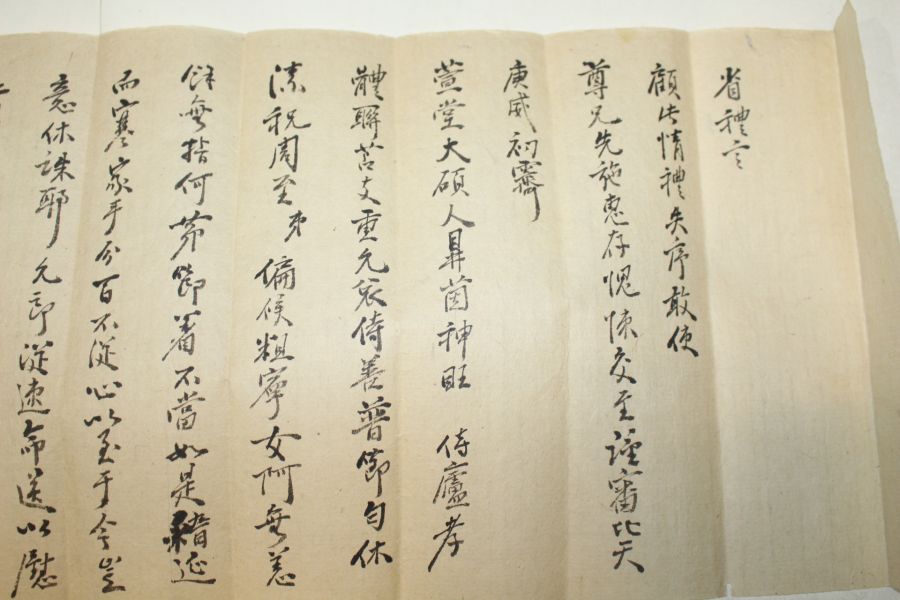 省禮言
顧此情禮失序敢使
尊兄先施惠存愧悚交至謹審比天
庚威初霽
萱堂大碩人鼎茵神旺 侍廬孝
體聯苫支重允衰侍善普節勻休
溸祝周至弟偏候粗寧女阿無恙
餘無指何第節着不當如是稽延
而寒家手分百不從心以至于今豈
意休誅耶允郎從速命送以慰